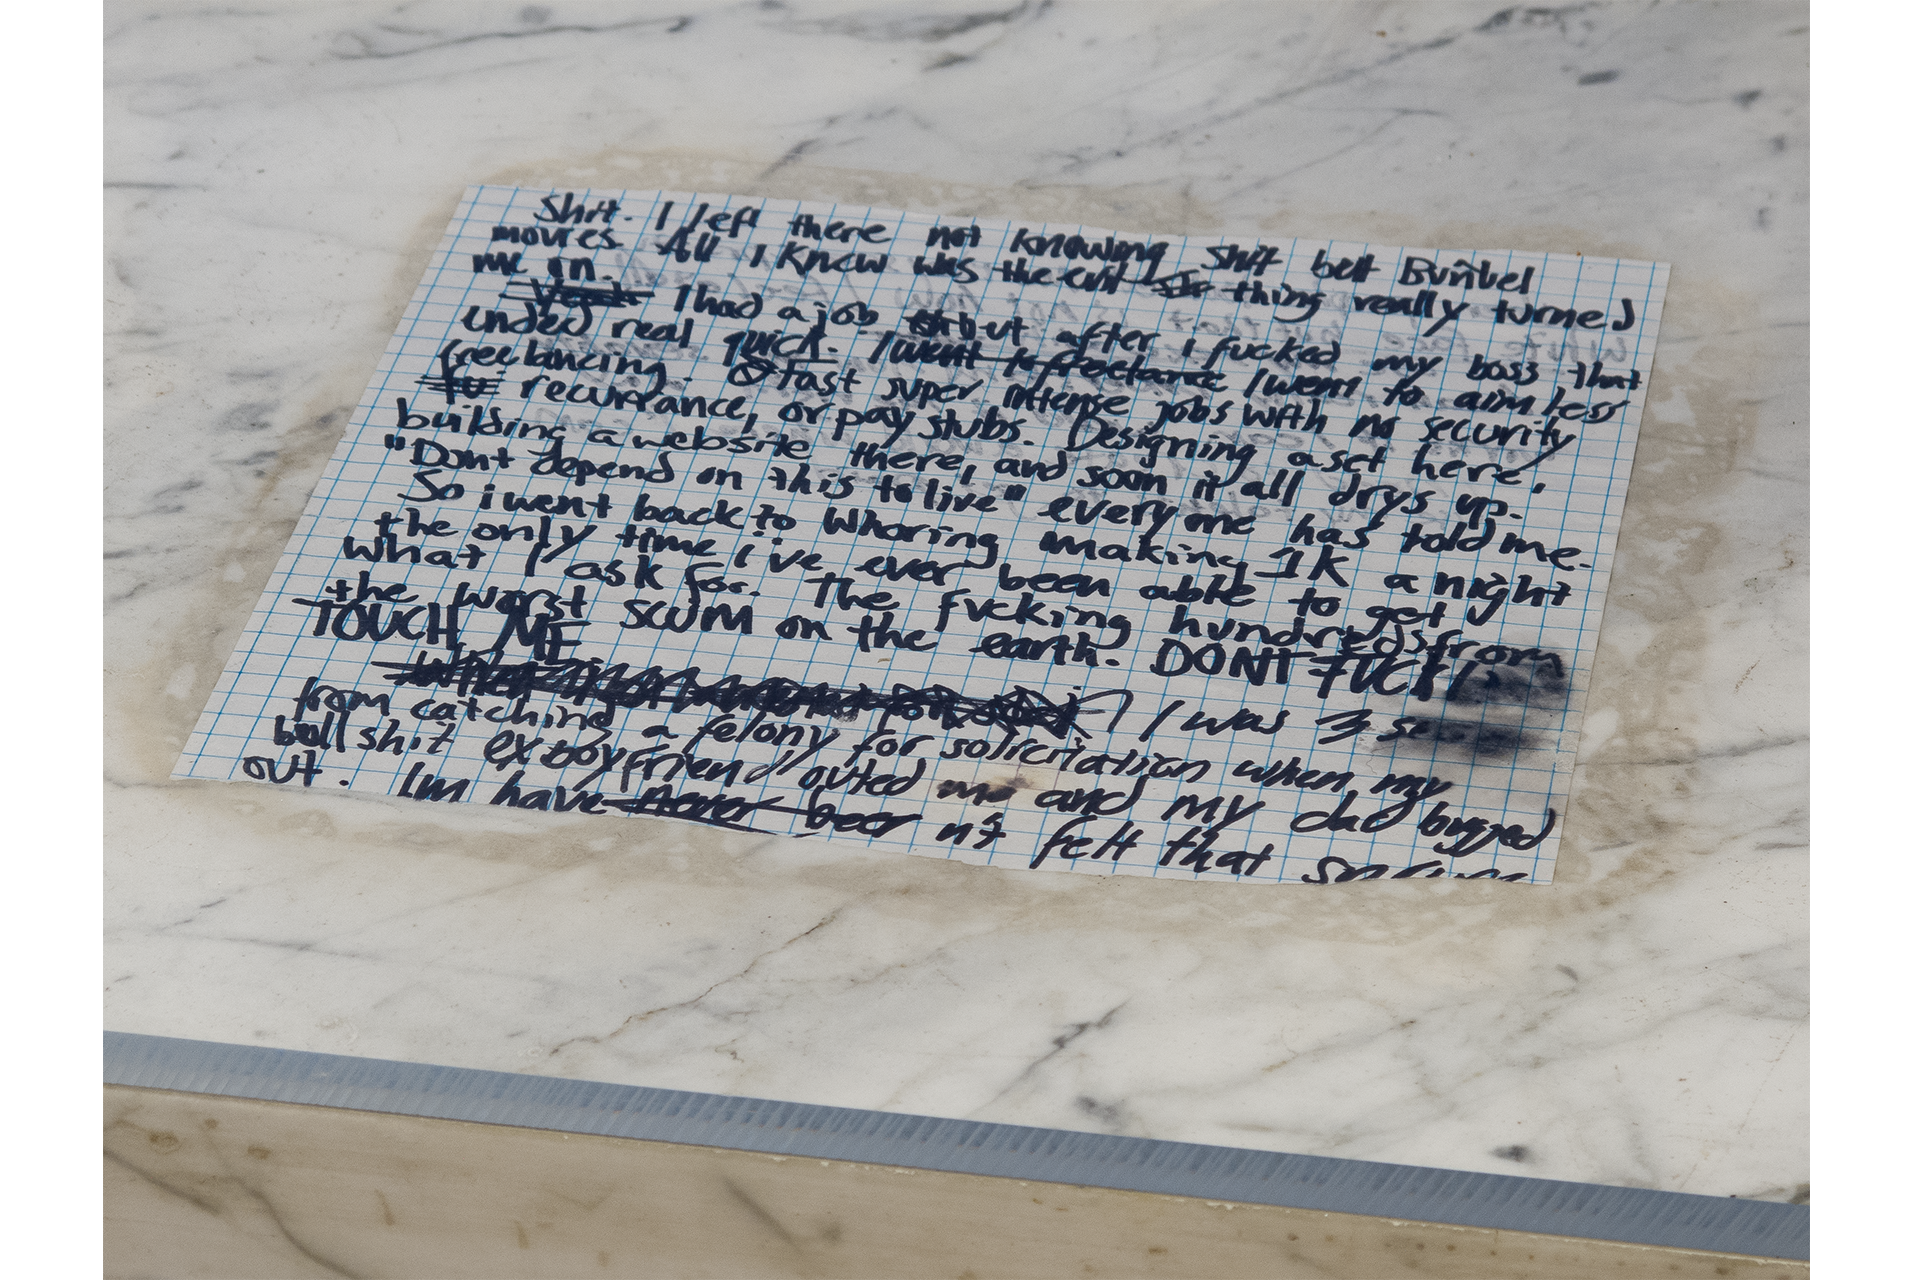 Shit. I left there not knowing shit but Buñuel
movies. All I knew was the cut thing really turned
me on.
I had a job but after i fucked my boss that
ended real quick. I went to freelance I went to aimless
freelancing. fast super intense jobs with no security
recurrance, or pay stubs. Designing a set here,
building a website there, and soon it all drys up.
"Dont depend on this to live" everyone has told me.
So i went back to whoring making 1K a night
the only time i've ever been able to get
what I ask for. The fucking hundreds from
the worst SCUM on the earth. DONT FUCKIN
TOUCH ME
I was 3
from catching a felony for solicitation when my
bullshit ex boyfriend outed me and my dad bugged
out. Im have never been n't felt that